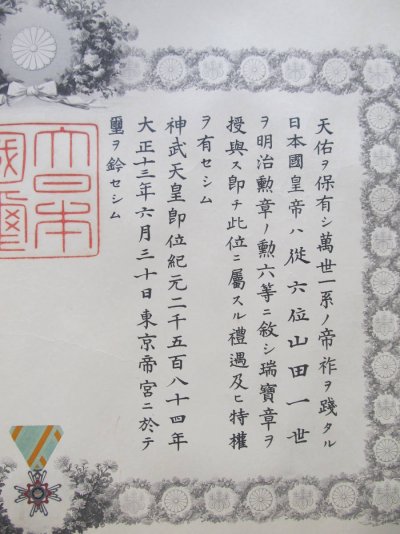 天佑ヲ保有シ萬世一系ノ帝祚ヲ踐タル
日本國皇帝ハ從六位山田一世
ヲ明治勲章ノ勲六等ニ敘シ瑞寶章ヲ
授與ス即チ此位ニ屬スル禮遇及ヒ特權
ヲ有セシム
神武天皇即位紀元二千五百八十四年
大正十三年六月三十日東京帝宮ニ於テ
璽ヲ鈐セシム
大日本
國璽